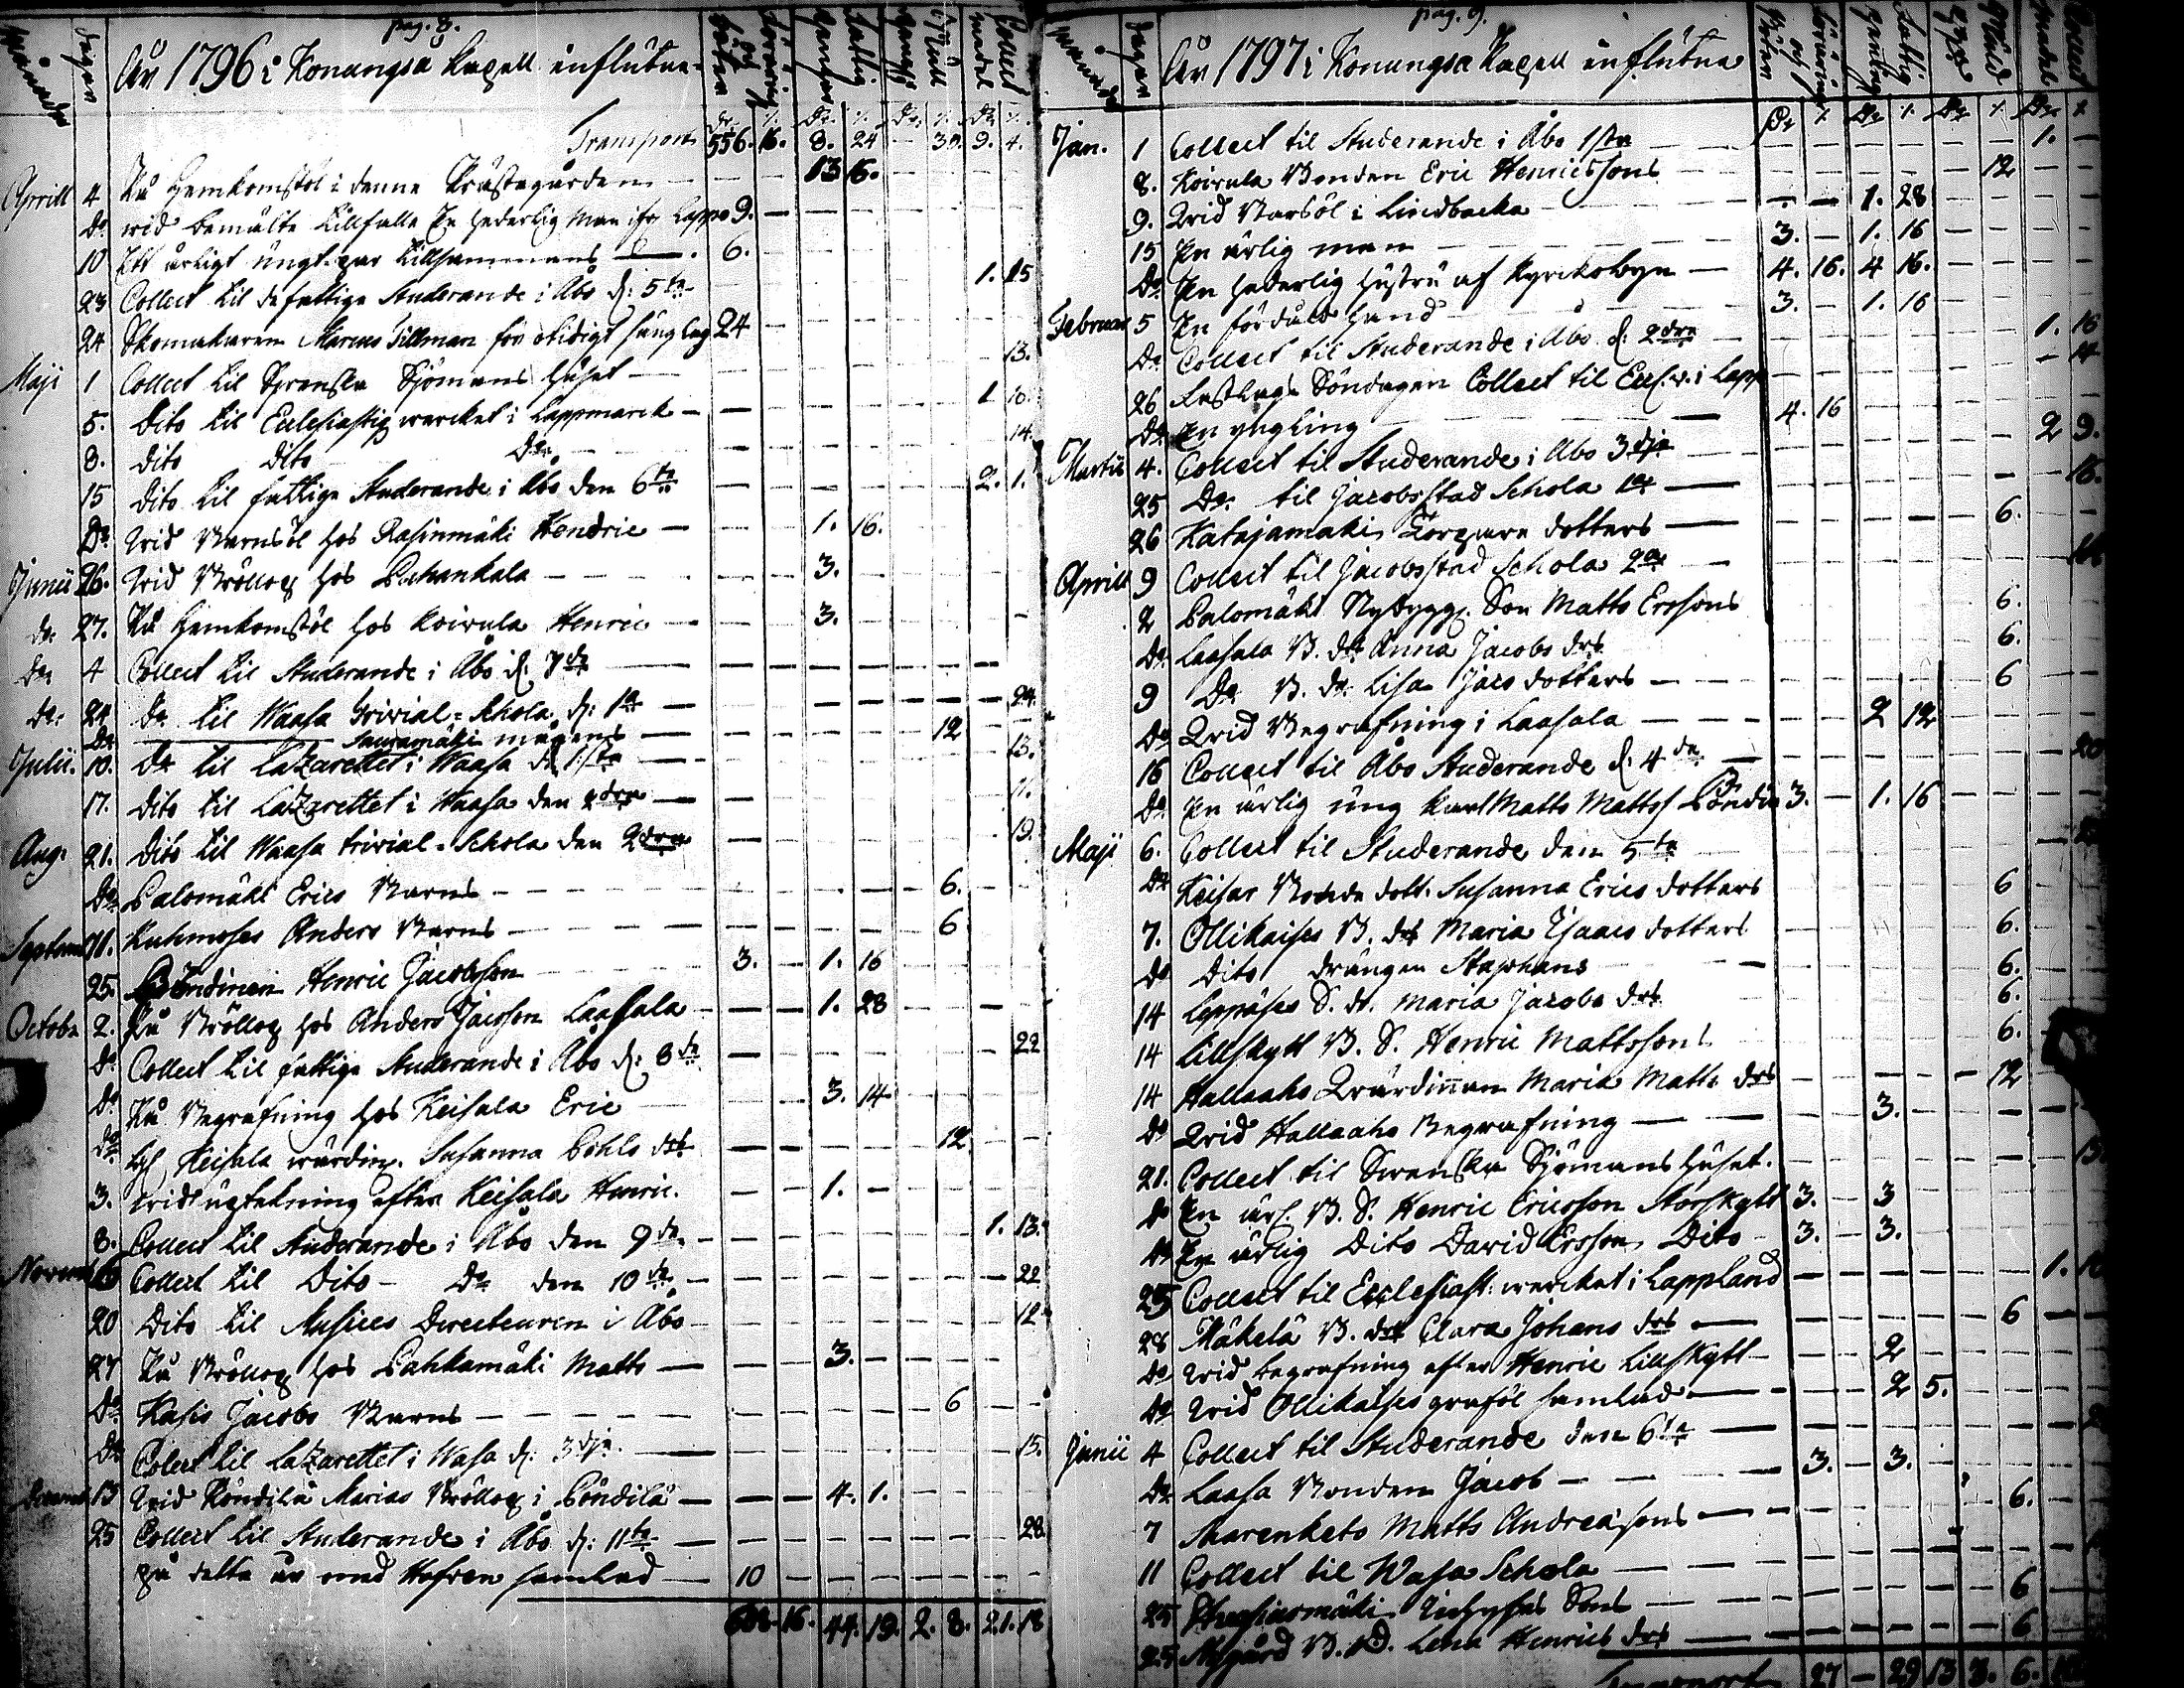 pag. 8.
Månader Dagar År 1796 i Konungså Kapell influtne
Transport 556. 16. 8. 24 - 30. 9. 4.
Aprill 4 På Hemkomstöl i denne Prästegården 13 16.
Do wid bemälte tillfälle En hederlig Man ifr Lappo 9.
10 Ett ärligt ungt par tillsammans 6.
23 Collect til de fattige Studerande i Åbo d: 5te 1. 15
24 Skomakaren Marcus Tillman för olidigt säng lag 24
Maji 1 Collect til Svenska Sjömans Huset 13.
5. Dito til Ecclesiastiq wercket i Lappmarck 1 16.
8. Dito Dito Do 14.
15 Dito til fattige Studerande i Åbo den 6te 2. 1.
Do Wid Barnsöl hos Rasinmäki Hendric 1. 16.
Junii 26. Wid Bröllop hos Pahankala 3.
do 27. På Hemkomstöl hos Koivula Henric 3.
do 4 Collect til Studerande i Åbo d: 7de
do 24 do til Waasa Trivial-Schola d: 1a 24.
Do Sauramäki mågens 12
Julii. 10. Do til Latzarettet i Waasa d. 1sta 13.
17. Dito til Latzarettet i Waasa den 2dra 11.
Aug. 21. Dito til Waasa trivial-Schola den 2dra 19.
Do Palomäki Erics Barns 6.
Septemb 11. Kuhmoses Anders Barns 6
25. Pöndinen Henric Jacobsson 3. 1. 16
Octobr 2. På Bröllop hos Anders Jacsson Laasala 1. 28
Do Collect til fattige Studerande i Åbo d: 8de 22
Do På Begrafning hos Keisala Eric 3. 14
Do Keisala wärdin. Susanna Påhls dtr 12
3. wid uptekning efter Keisala Henric. 1.
8. Collect til Studerande i Åbo den 9de 1. 13.
Novemb Collect til Dito Do den 10de 22
20 Dito til Musices Directeuren i Åbo 12
27 På Bröllop hos Pahkamäki Matts 3.
Do Kasis Jacobs Barns 6
Do Colect til Latzarettet i Wasa d: 3dje 15.
Decemb 13 Wid Pöndilä Marias Bröllop i Pöndilä 4. 1.
25 Collect til Studerande i Åbo d: 11te 28
på detta år med Hafven samlad 10
608 16. 44. 19. 2. 8. 21. 18
pag. 9.
År 1797 i Konungså Kapell influtne
Jan. 1 Collect til Studerande i Åbo 1sta 1.
8. Koivula Bonden Eric Henricssons 12
9. Wid Barsöl i Lindbacka 1. 28
15 En ärlig man 3. 1. 16
Do En hederlig hustru af Kyrckobyn 4. 16. 4 16.
Februar 5 En fördold hand 3. 1. 16
Do Collect til Studerande i Åbo d: 2dra 1. 16
26 Fastlags Söndagen Collect til Eccl. w. i Lapp 14
Do En yngling 4. 16
Martii 4. Collect til Studerande i Åbo 3dje 2 9.
25 Do til Jacobsstad Schola 1a 16.
26 Katajamäki Torpare dotters 6.
Aprill 9 Collect til Jacobsstad Schola 2a
2 Palomäki Nybygg. Son Matts Erssons 6.
Do Laasala B. dtr Anna Jacobs dtrs 6.
9 Do B. dr Lisa Jacs dotters 6
Do Wid Begrafning i Laasala 2 12
16 Collect til Åbo Studerande d: 4de 20
Do En ärlig ung karl Matts Mattss Pöndin 3. 1. 16
Maji 6. Collect til Studerande den 5te
Do Keisar Bonde dott. Susanna Erics dotters 6
7. Ollikaises B. dtr Maria Isaacs dotters 6.
Do Dito drängen Staphans 6.
14 Leppäses S. dr. Maria Jacobs dtrs 6.
14 Lillskytt B. S. Henric Mattssons 6.
14 Hallaaho Wärdinnan Maria Matts dtrs 12
Do Wid Hallaaho Begrafning 3.
21. Collect til Swenska Sjömans Huset. 13
Do En ärl. B. S. Henric Ericsson Storskytt 3. 3
Do En ärlig Dito David Ersson Dito 3. 3.
25 Collect til Ecclesiast: wercket i Lappland 1.
28 Mäkelä B. dtr Clara Johans dtrs 6
Do Wid begrafning efter Henric Lillskytt 2
Do Wid Ollikaises graföl samlad 2 5.
Junii 4 Collect til Studerande den 6te
Do Laasa Bonden Jacob 3. 3.
7 Marenkets Matts Andreasons 6.
11 Collect til Wasa Schola
25 Sons 6
25 B. D. Lena Henrics dtrs 6
Transport 27 - 29 13 3. 6.